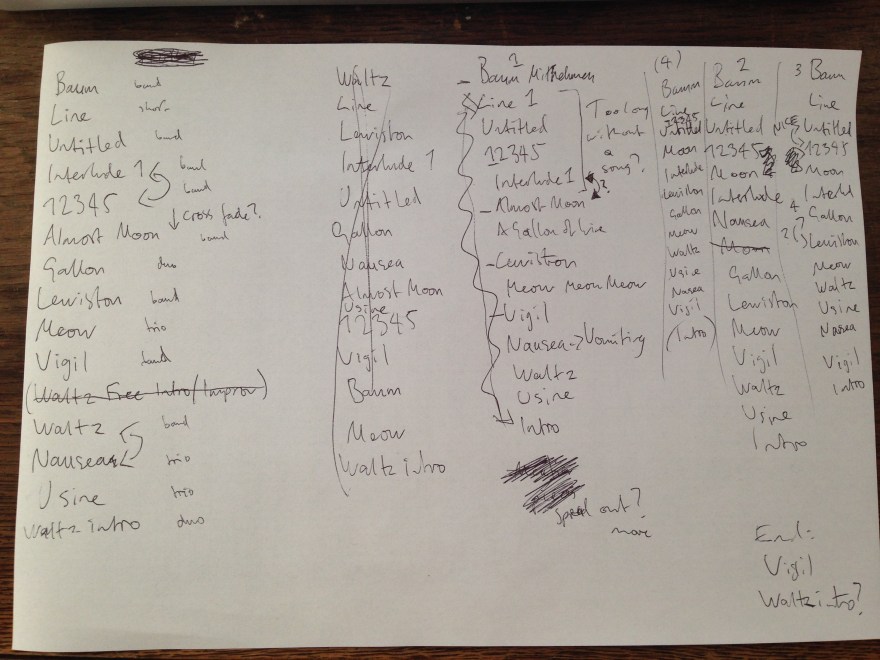 Baum band
Line short
Untitled band
Interlude 1 band
12345 band
Cross fade?
Almost Moon band
Gallon duo
Lewiston band
Meow trio
Vigil band
(Waltz Free Intro/Improv)
Waltz band
Nausea trio
Usine trio
Waltz intro duo
Waltz
Line
Lewiston
Interlude 1
Untitled
Gallon
Nausea
Almost Moon
Usine
12345
Vigil
Baum
Meow
Waltz intro
1
Baum
Line 1
Untitled
12345
Interlude 1
Almost Moon
A Gallon of Line
Lewiston
Meow Meow Meow
Vigil
Nausea -> Vomiting
Waltz
Usine
Intro
Too long
without
a
song?
?
out?
more
(4)
Baum
Line
12345
Untitled
Moon
Interlude
Lewiston
Gallon
Meow
Waltz
Usine
Nausea
Vigil
(Intro)
2
Baum
Line
Untitled
12345
Moon
Interlude
Nausea
Moon
Gallon
Lewiston
Meow
Vigil
Waltz
Usine
Intro
3
Baum
Line
NICE
Untitled
12345
Moon
Interl
4 Gallon
?
Lewiston
Meow
Waltz
Usine
Nausea
Vigil
Intro
End:
Vigil
Waltz intro?